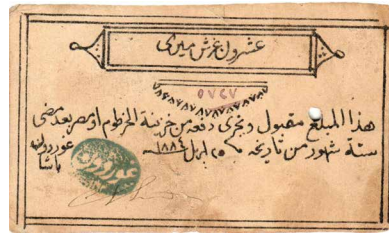 عشرون غرش ميري
٥٧٤٧
هذا المبلغ مقبول ويجرى دفعه من خزينة الخرطوم او مصر بعد مضى
ستة شهور من تاريخه ٢٥ ابريل ١٨٨٤ غوردون
باشا